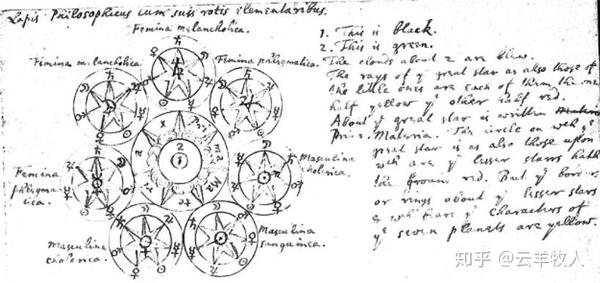 Lapis Philosophicus cum suis rotis elementaribus.
Femina melancholica.
Femina melancholica.
Femina phlegmatica.
Masculina cholerica.
Femina phlegmatica.
Masculina cholerica.
Masculina sanguinea.
2
1
1. This is black.
2. This is green.
The clouds about 2 are blew.
The rays of ye great star as also those of
the little ones are each of them the one
half yellow ye other half red.
About ye great star is written
Prim. Materia. The circle on wch ye
great star is as also those upon
wch are ye lesser starrs hath
the ground red. But ye borders
or rings about ye lesser stars
on wch are ye characters of
ye seven planets are yellow.
知乎 @云羊牧人